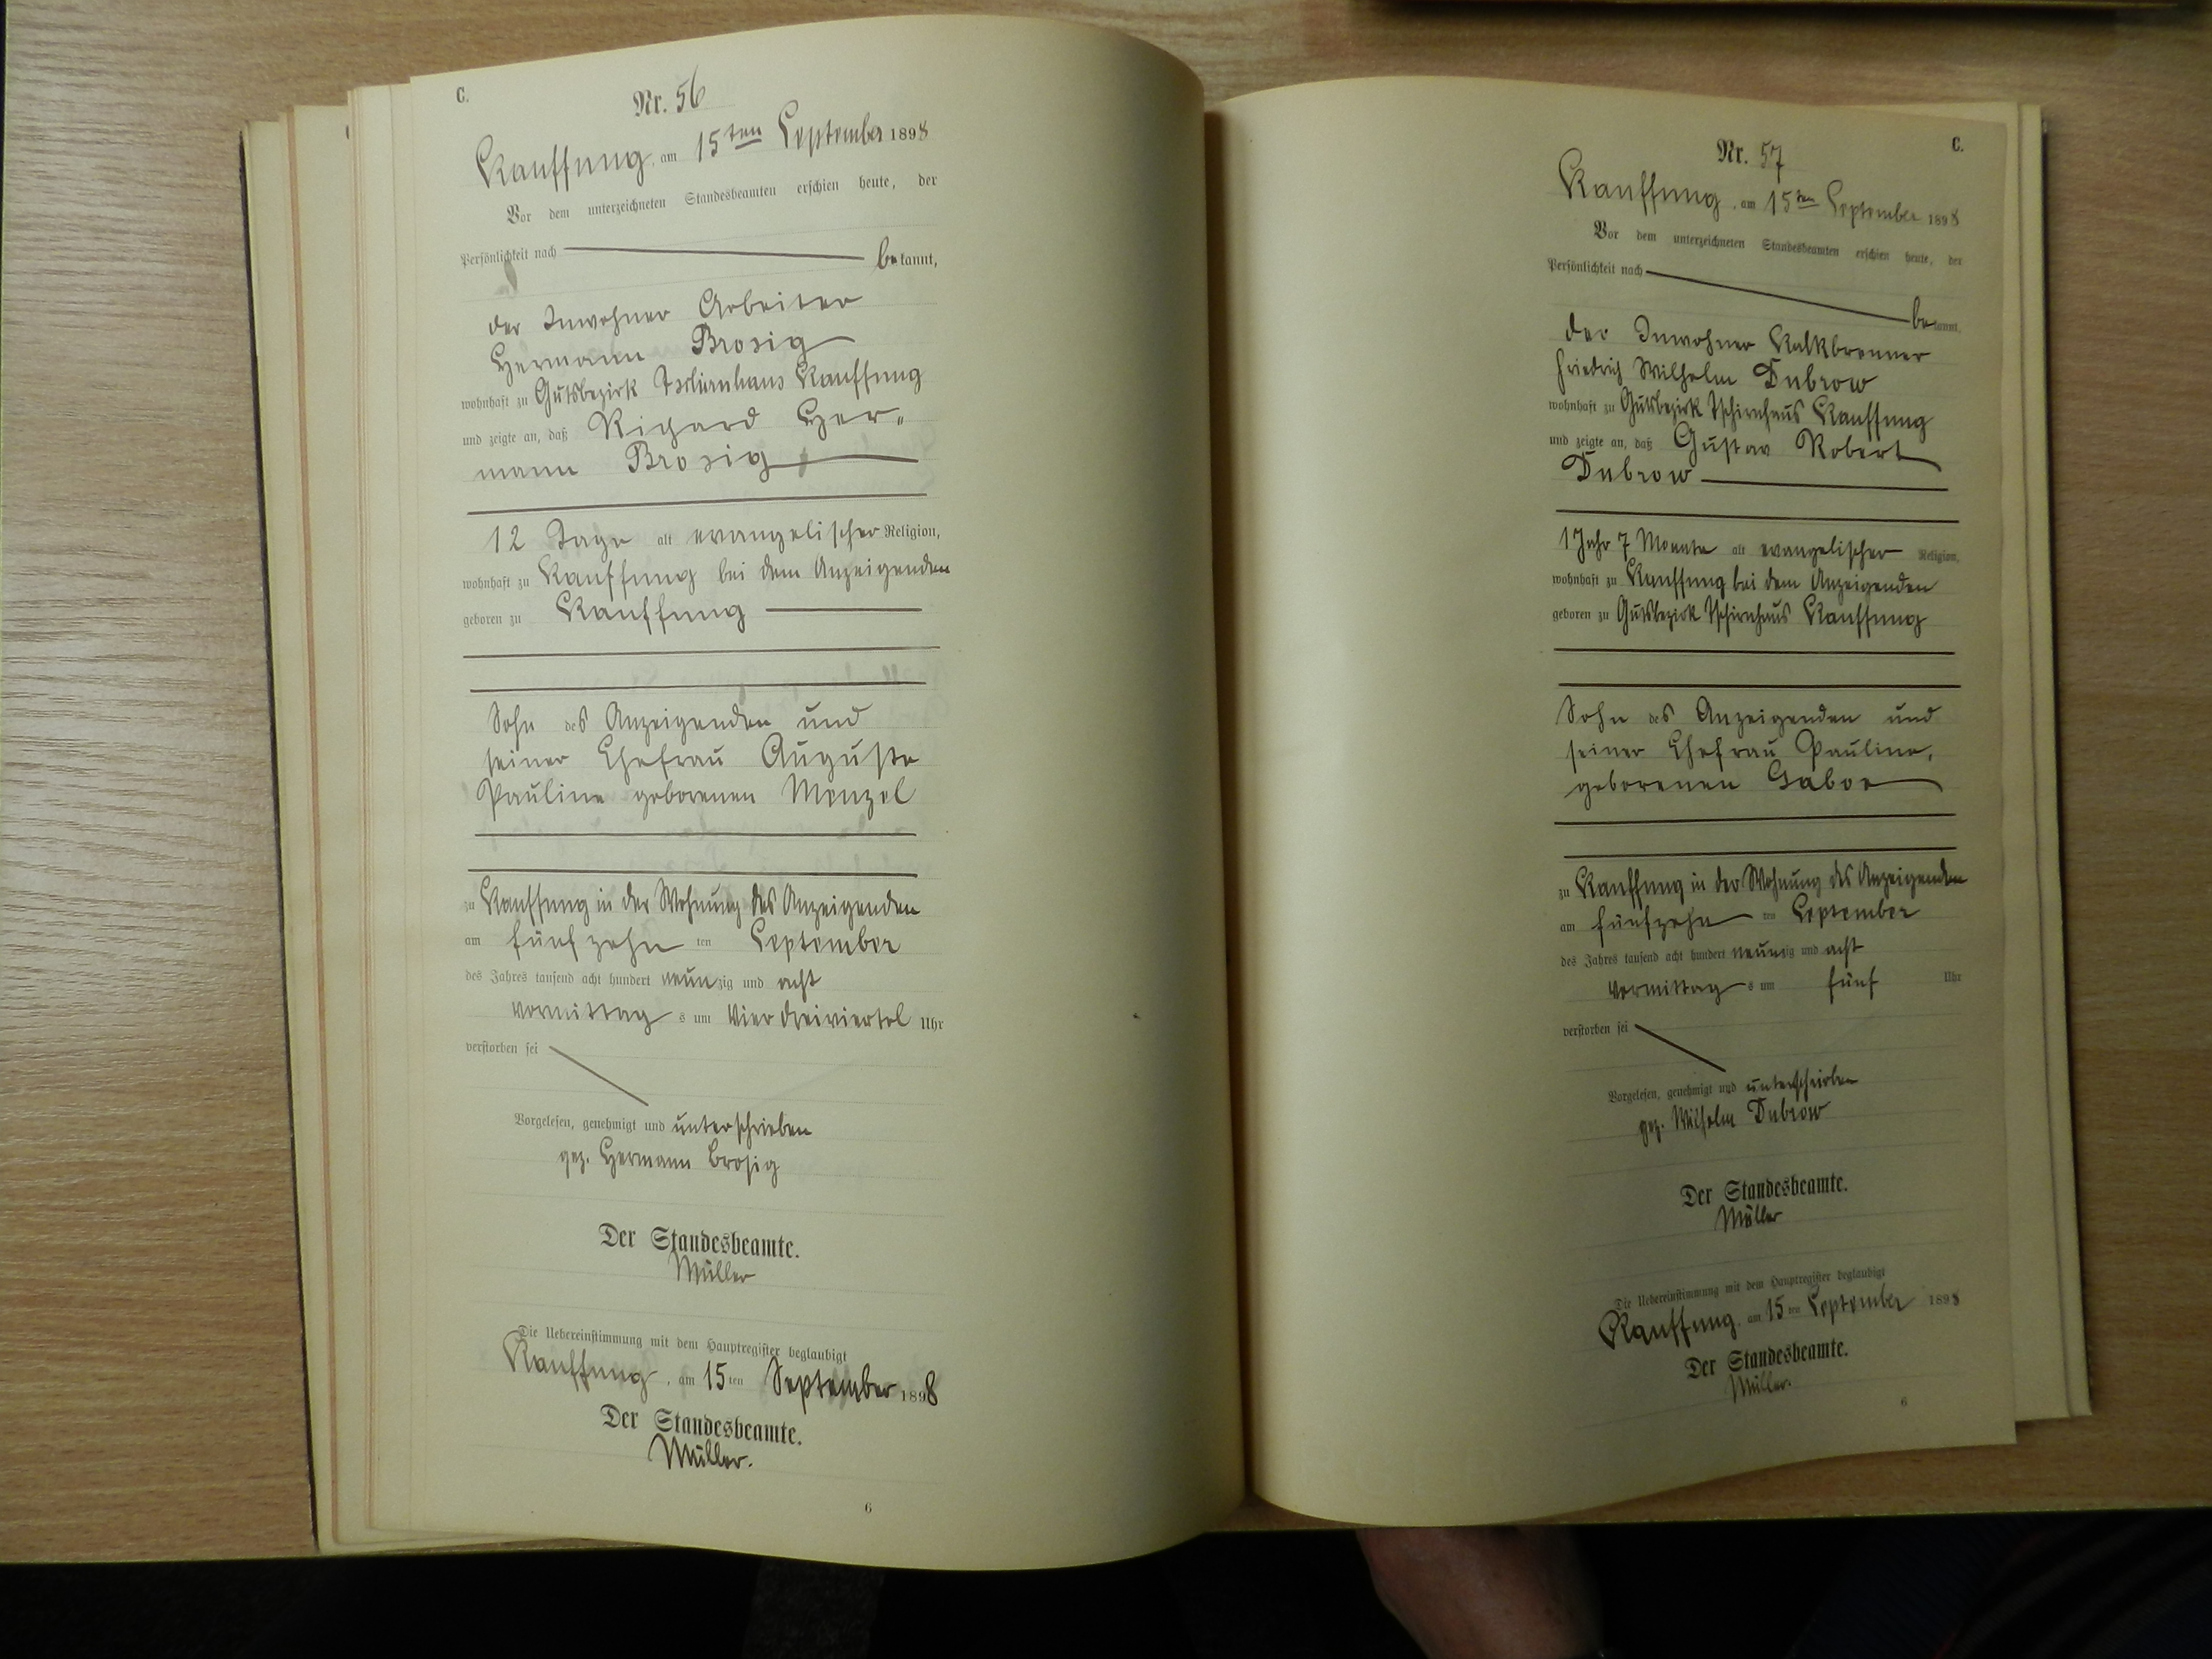 C.
Nr. 56
Kauffung, am 15ten September 1898
Vor dem unterzeichneten Standesbeamten erschien heute, der
Persönlichkeit nach bekannt,
der Inwohner Arbeiter
Hermann Brosig
wohnhaft zu Gutsbezirk Kauffung
und zeigte an, daß Richard Her-
mann Brosig
12 Tage alt evangelischer Religion,
wohnhaft zu Kauffung bei dem Anzeigenden
geboren zu Kauffung
Sohn des Anzeigenden und
seiner Ehefrau Auguste
Pauline geborenen Menzel
zu Kauffung in der Wohnung des Anzeigenden
am fünfzehn ten September
des Jahres tausend acht hundert neunzig und acht
Vormittag s um vier dreiviertel Uhr
verstorben sei
Vorgelesen, genehmigt und unterschrieben
gez. Hermann Brosig
Der Standesbeamte.
Müller
Die Uebereinstimmung mit dem Hauptregister beglaubigt
Kauffung, am 15ten September 1898
Der Standesbeamte.
Müller.
6
C.
Nr. 57
Kauffung, am 15ten September 1898
Vor dem unterzeichneten Standesbeamten erschien heute, der
Persönlichkeit nach bekannt,
der Inwohner Kalkbrenner
Friedrich Wilhelm Dubrow
wohnhaft zu Gutsbezirk Tschirnhaus Kauffung
und zeigte an, daß Gustav Robert
Dubrow
1 Jahr 7 Monate alt evangelischer Religion,
wohnhaft zu Kauffung bei dem Anzeigenden
geboren zu Gutsbezirk Tschirnhaus Kauffung
Sohn des Anzeigenden und
seiner Ehefrau Pauline,
geborenen
zu Kauffung in der Wohnung des Anzeigenden
am fünfzehn ten September
des Jahres tausend acht hundert neunzig und acht
Vormittag s um fünf Uhr
verstorben sei
Vorgelesen, genehmigt und unterschrieben
gez. Wilhelm Dubrow
Der Standesbeamte.
Müller
Die Uebereinstimmung mit dem Hauptregister beglaubigt
Kauffung, am 15ten September 1898
Der Standesbeamte.
Müller.
6